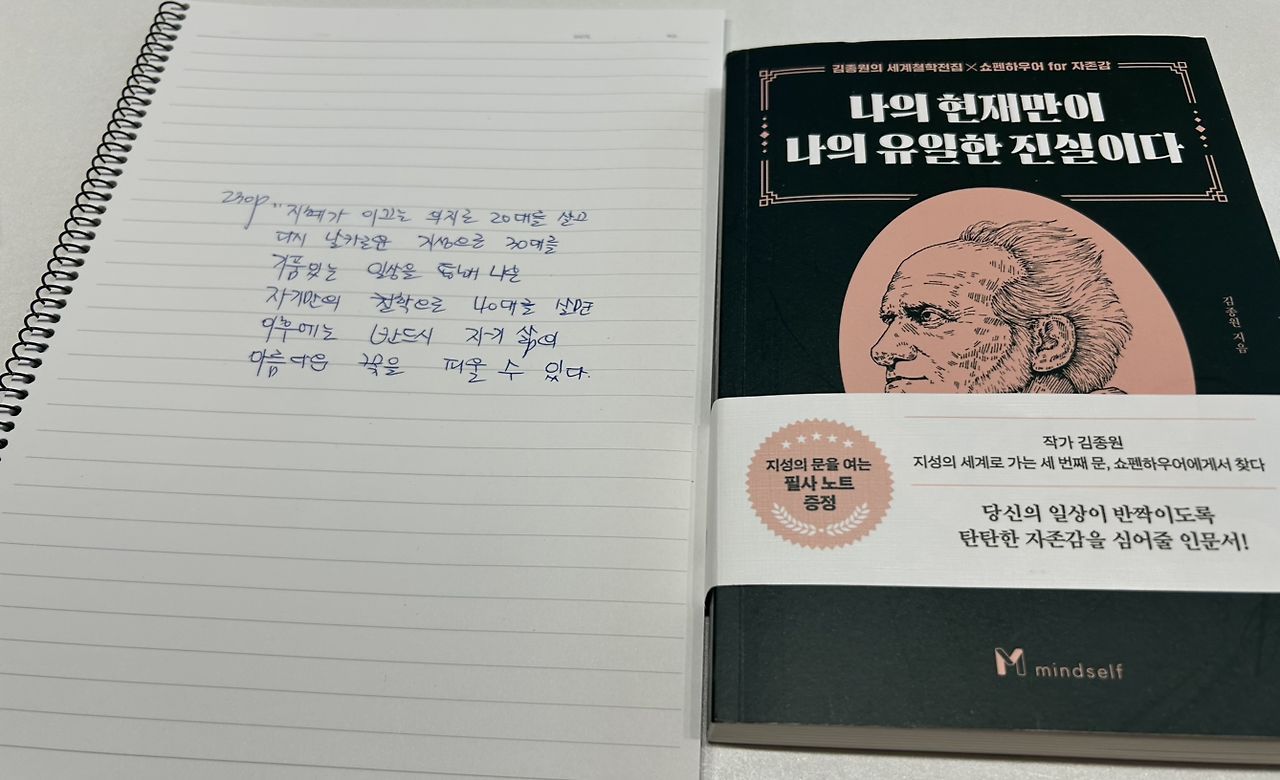 23p "지혜가 이끄는 의지로 20대를 살고
다시 날카로운 지성으로 30대를
거품없는 일상을 통해 나온
자기만의 철학으로 40대를 살면
이후에는 반드시 자기 삶의
아름다운 꽃을 피울 수 있다.
김종원의 세계철학전집×쇼펜하우어 for 자존감
나의 현재만이
나의 유일한 진실이다
김종원 지음
지성의 문을 여는
필사 노트
증정
작가 김종원
지성의 세계로 가는 세 번째 문, 쇼펜하우어에게서 찾다
당신의 일상이 반짝이도록
탄탄한 자존감을 심어줄 인문서!
M mindself